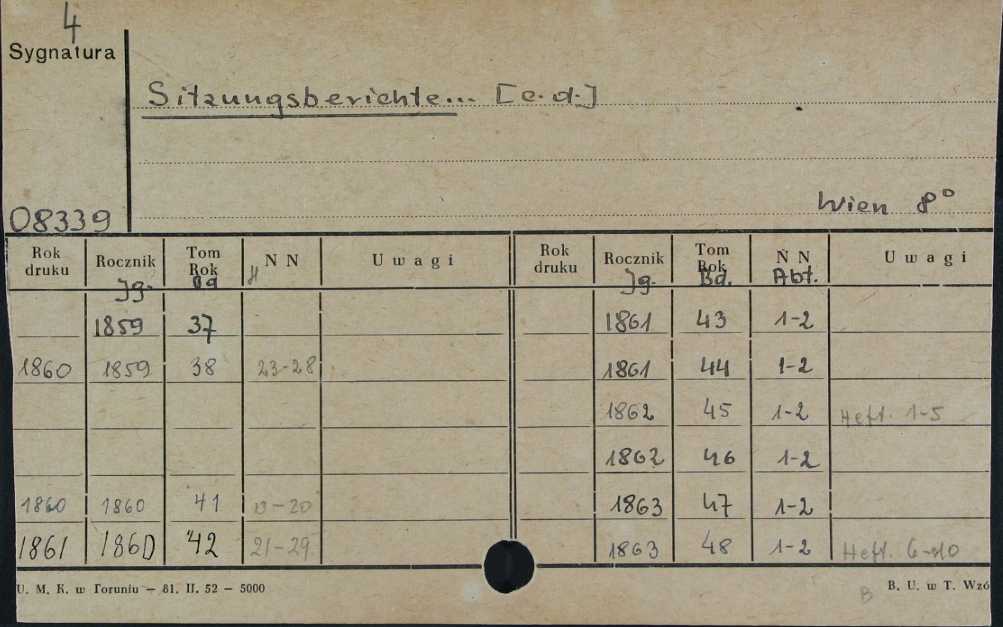 4
Sygnatura
Sitzungsberichte... [c.d.]
Wien 8°
08339
Rok druku Rocznik Tom Rok N N Uwagi Rok druku Rocznik Tom Rok N N Uwagi
Jg. Bd H Jg. Bd. Abt.
1859 37 1861 43 1-2
1860 1859 38 23-28 1861 44 1-2
1862 45 1-2 Heft. 1-5
1862 46 1-2
1860 1860 41 -20 1863 47 1-2
1861 1860 42 21-29 1863 48 1-2 Heft. 6-10
U. M. K. w Toruniu — 81. II. 52 — 5000 B. U. w T. Wzó
B